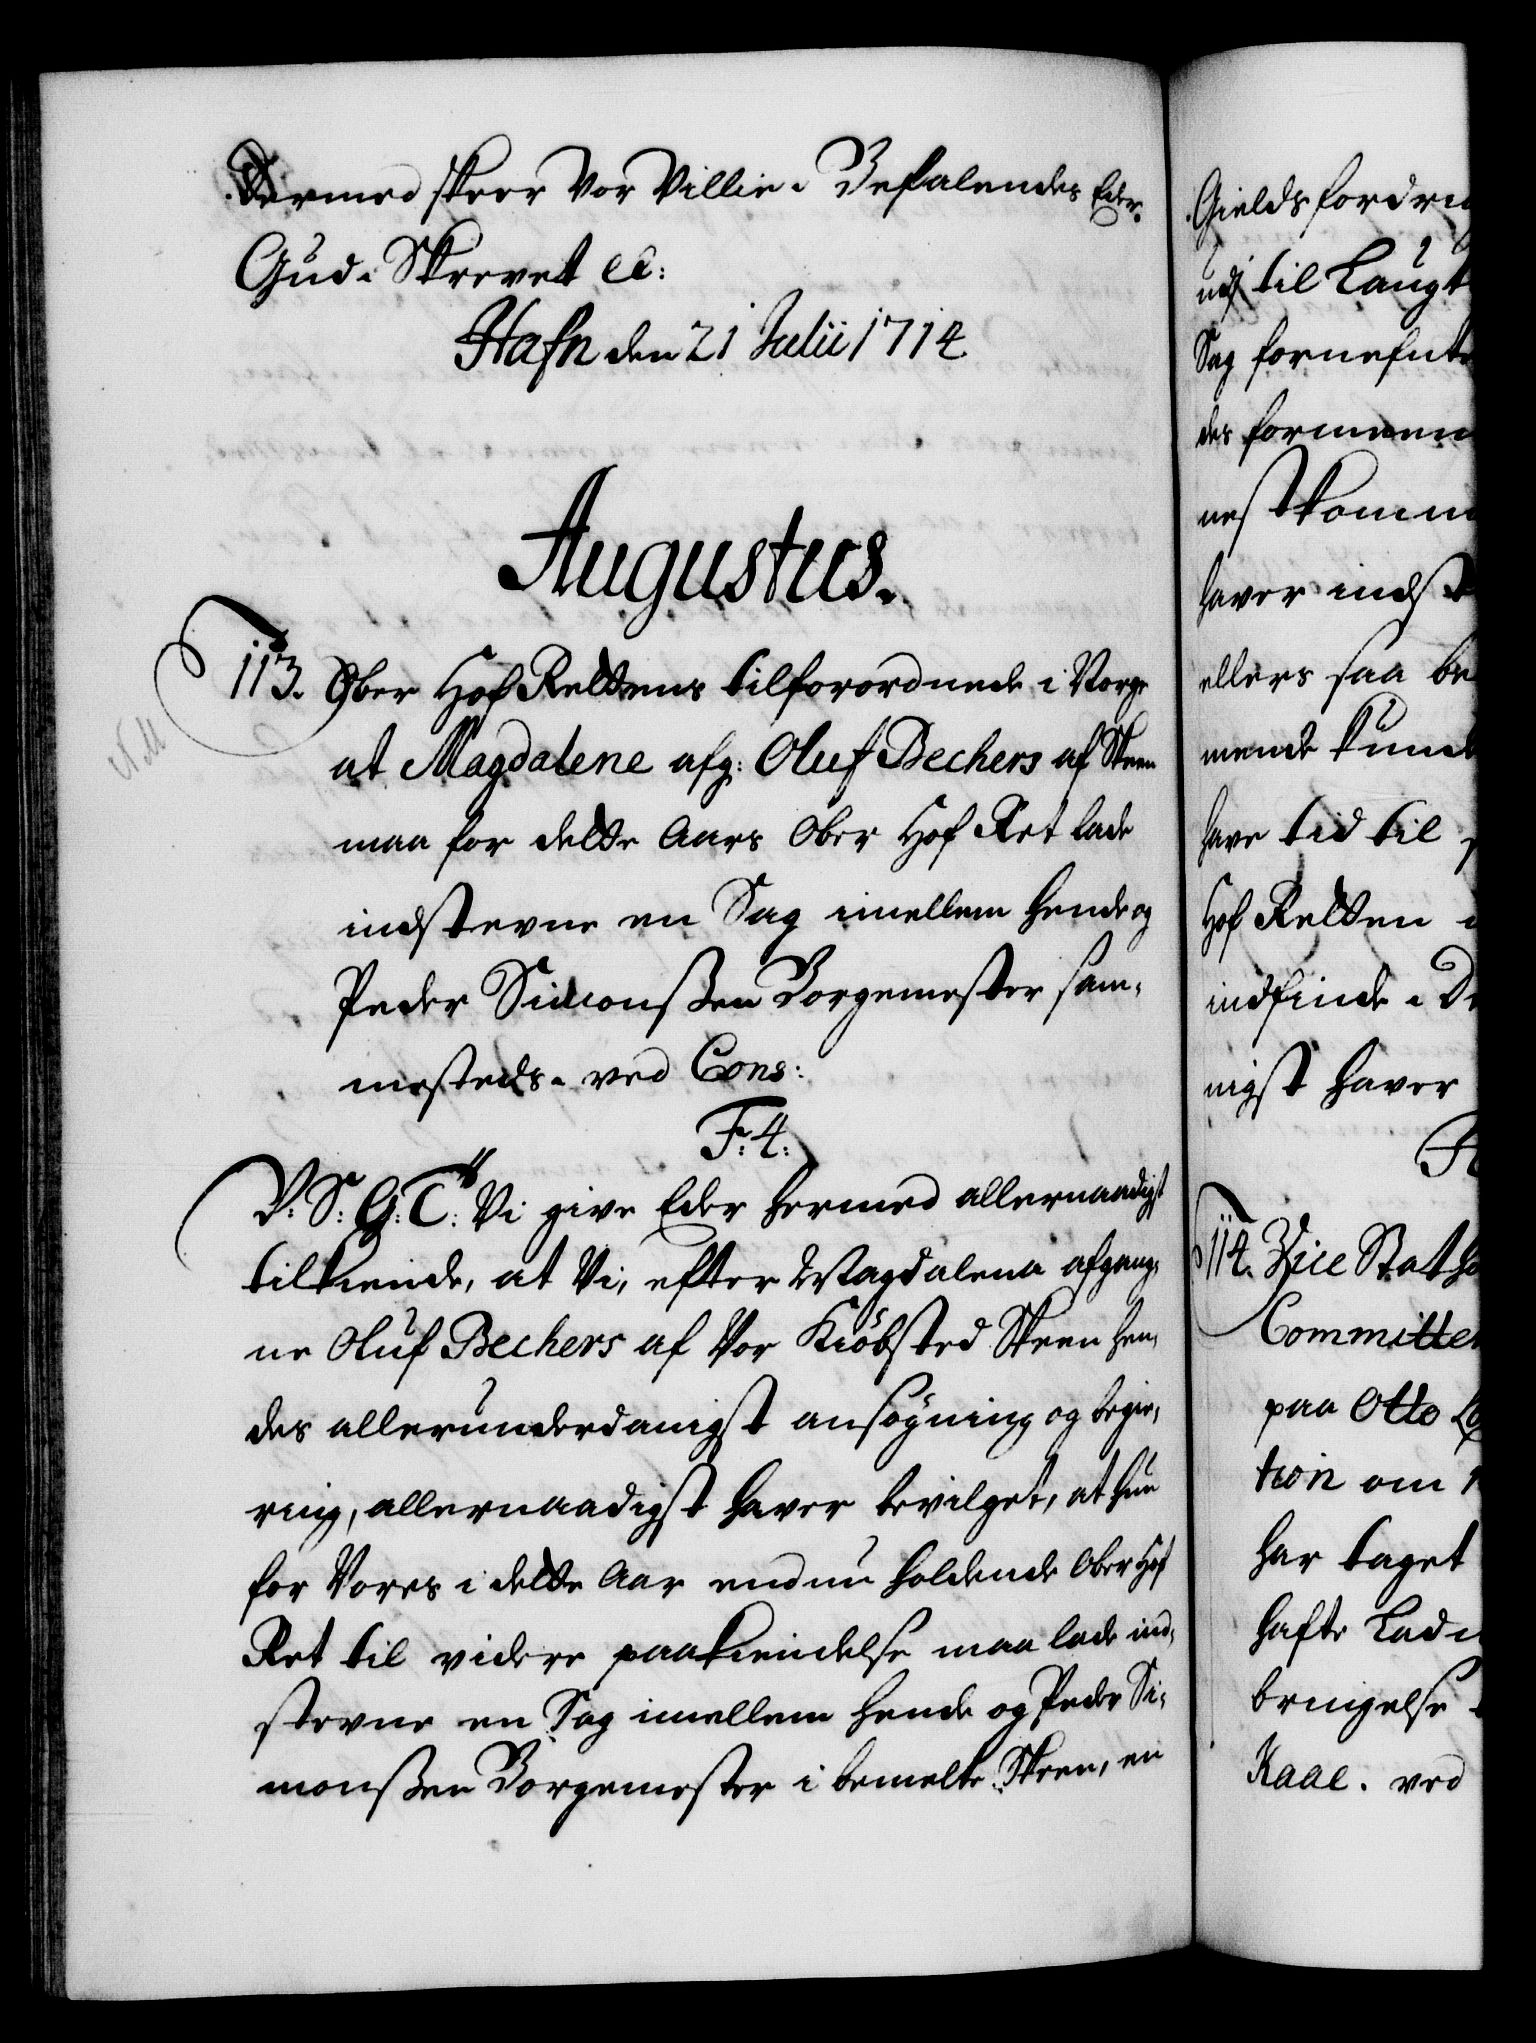 Dermed skeer Vor Villie. Befalendes Eder
Gud. Skrevet etc:
Hafn den 21 Julii 1714
Augustus.
113. Ober Hof Rettens tilforordnede i Norge
at Magdalene afg: Oluf Bechers af Skeen
maa for dette Aars Ober Hof Ret lade
indstevne en Sag imellem hende og
Peder Simonßen Borgemester sam-
mesteds. ved Cons:
F: 4:
V: S: G: T: Vi give Eder hermed allernaadigst
tilkiende, at Vi, efter Magdalena afgang-
ne Oluf Bechers af Vor Kiöbsted Skeen hen-
des allerunderdanigst ansøgning og begie-
ring, allernaadigst haver bevilget, at hun
for Vores i dette Aar endnu holdende Ober Hof
Ret til videre paakiendelse maa lade ind-
stevne en Sag imellem hende og Peder Si-
monßen Borgemester i bemelte Skeen, en
Gields fordri
udj til Laugt
Sag fornefnte
des formeen
nest komm
haver indst
ellers saa be
mende kund
have tid til
Hof Retten
indfinde. D
nigst haver
114. Vice Statho
Committer
paa Otto
tion om
har taget
hafte Lad
bringelse
Kaae. ved